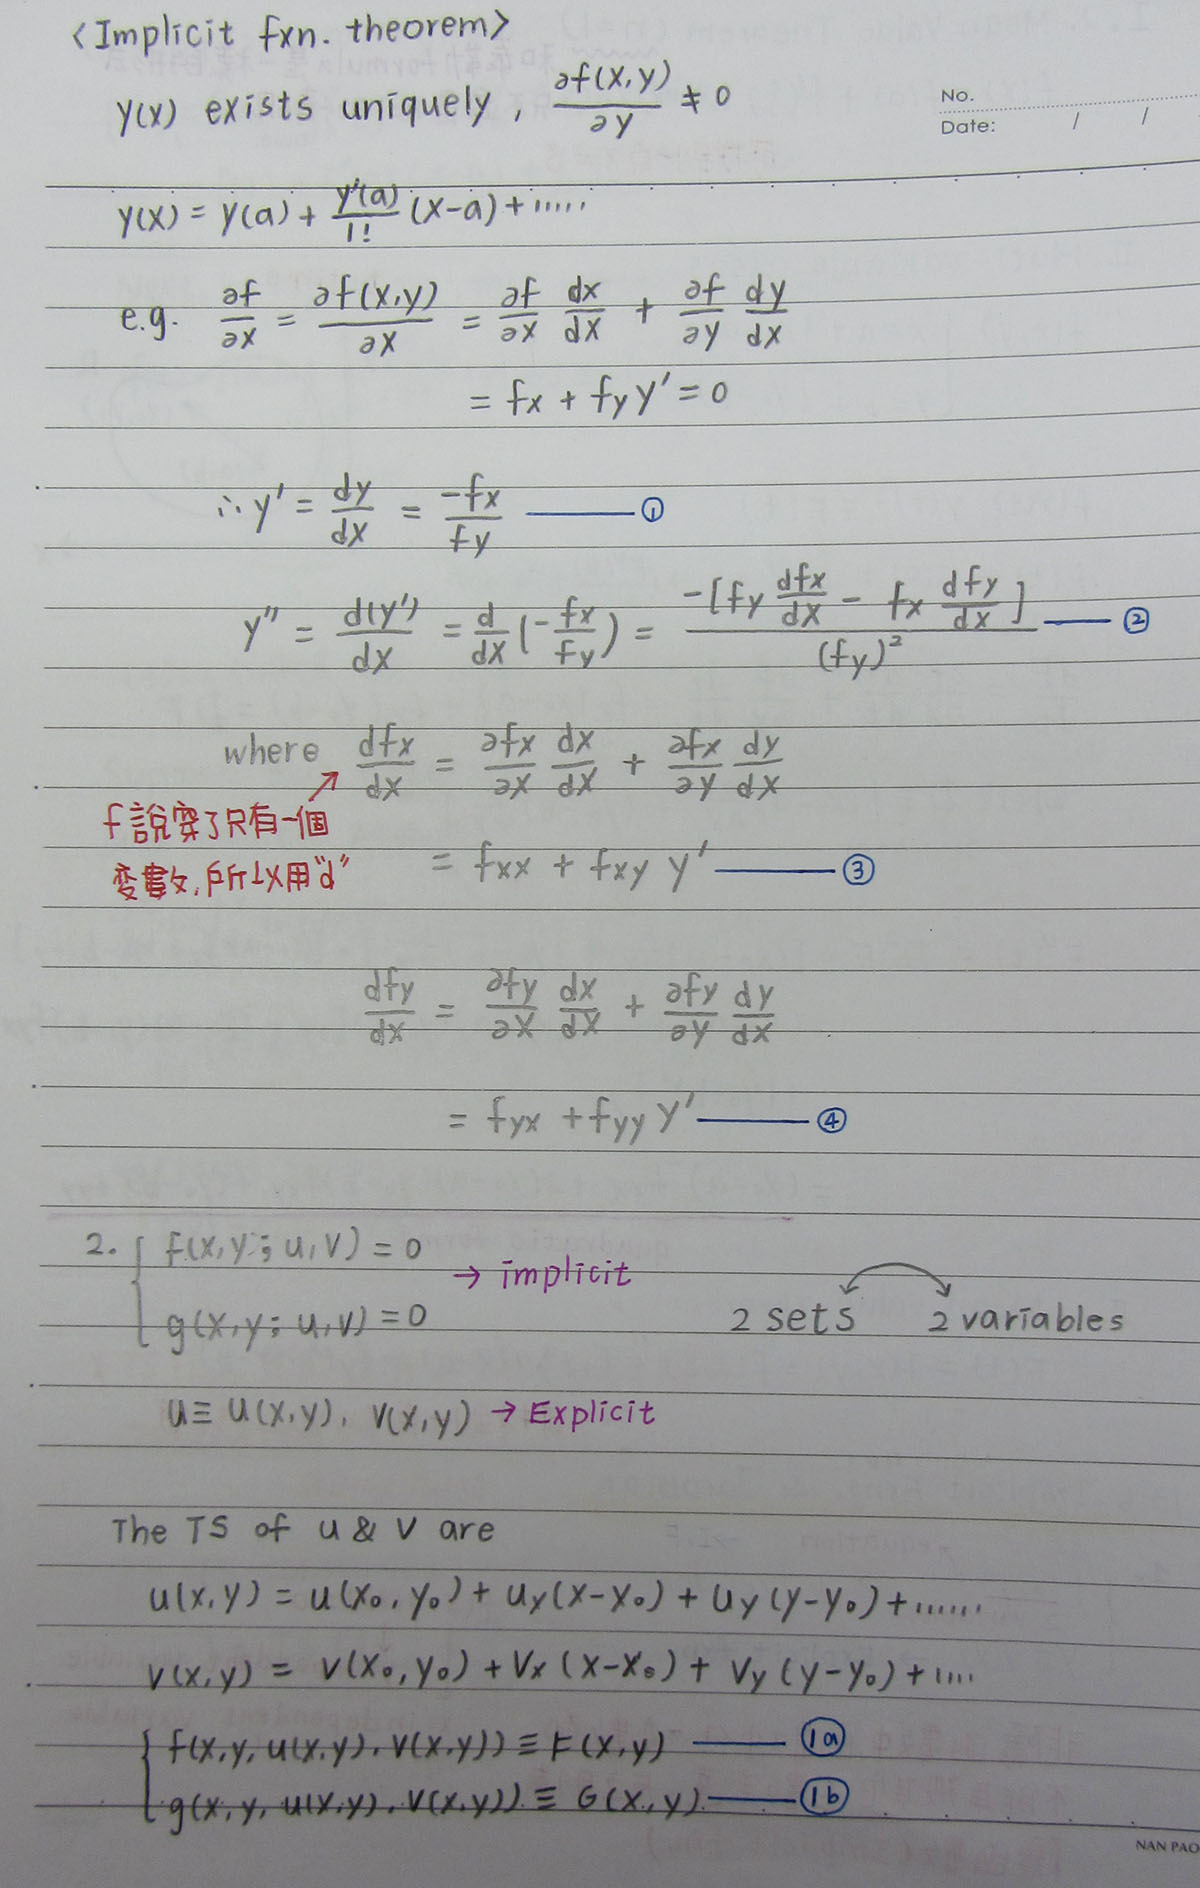 <Implicit fxn. theorem>
y(x) exists uniquely, ∂f(x,y)/∂y ≠ 0
No.
Date: / /
y(x) = y(a) + y'(a)/1! (x-a) + .....
e.g. ∂f/∂x = ∂f(x,y)/∂x = ∂f/∂x dx/dx + ∂f/∂y dy/dx
= fx + fy y' = 0
∴ y' = dy/dx = -fx/fy —— ①
y'' = d(y')/dx = d/dx (-fx/fy) = -[fy dfx/dx - fx dfy/dx]/(fy)² —— ②
where dfx/dx = ∂fx/∂x dx/dx + ∂fx/∂y dy/dx
f 說穿了只有一個
变數,所以用"d"
= fxx + fxy y' —— ③
dfy/dx = ∂fy/∂x dx/dx + ∂fy/∂y dy/dx
= fyx + fyy y' —— ④
2. { f(x,y; u,v) = 0
g(x,y; u,v) = 0
→ implicit
2 sets 2 variables
u ≡ u(x,y), v(x,y) → Explicit
The TS of u & v are
u(x,y) = u(x₀,y₀) + ux(x-x₀) + uy(y-y₀) + ......
v(x,y) = v(x₀,y₀) + vx(x-x₀) + vy(y-y₀) + ....
{ f(x,y, u(x,y), v(x,y)) ≡ F(x,y) —— 1a
g(x,y, u(x,y), v(x,y)) ≡ G(x,y) —— 1b
NAN PAO